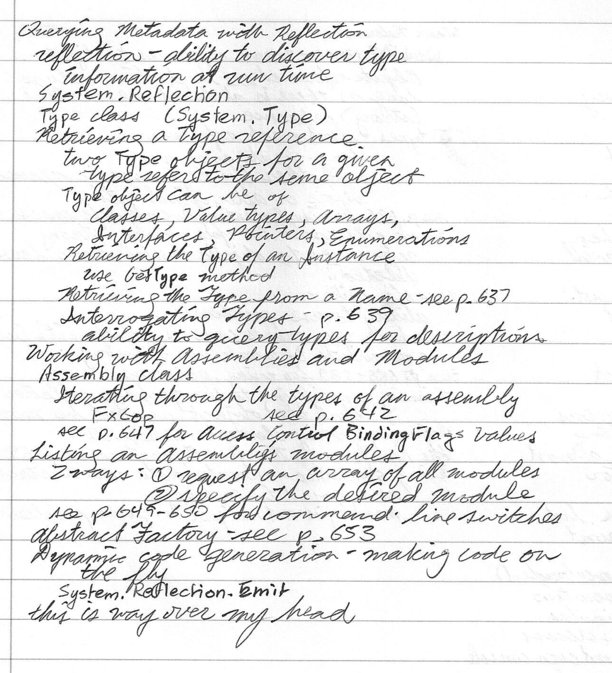 Querying Metadata with Reflection
reflection - ability to discover type
information at run time
System.Reflection
Type class (System.Type)
Retrieving a type reference
two Type objects for a given
type refer to the same object
Type object can be of
classes, Value types, arrays,
Interfaces, Pointers, Enumerations
Retrieving the Type of an Instance
use GetType method
Retrieving the Type from a Name - see p. 637
Interrogating Types - p. 639
ability to query types for description
Working with Assemblies and Modules
Assembly class
Iterating through the types of an assembly
FxCop see p. 642
see p. 647 for Access Control BindingFlags values
Listing an Assemblies modules
2 ways: ① request an array of all modules
② specify the desired module
see p. 649-650 for command-line switches
Abstract Factory - see p. 653
Dynamic code generation - making code on
the fly
System.Reflection.Emit
this is way over my head